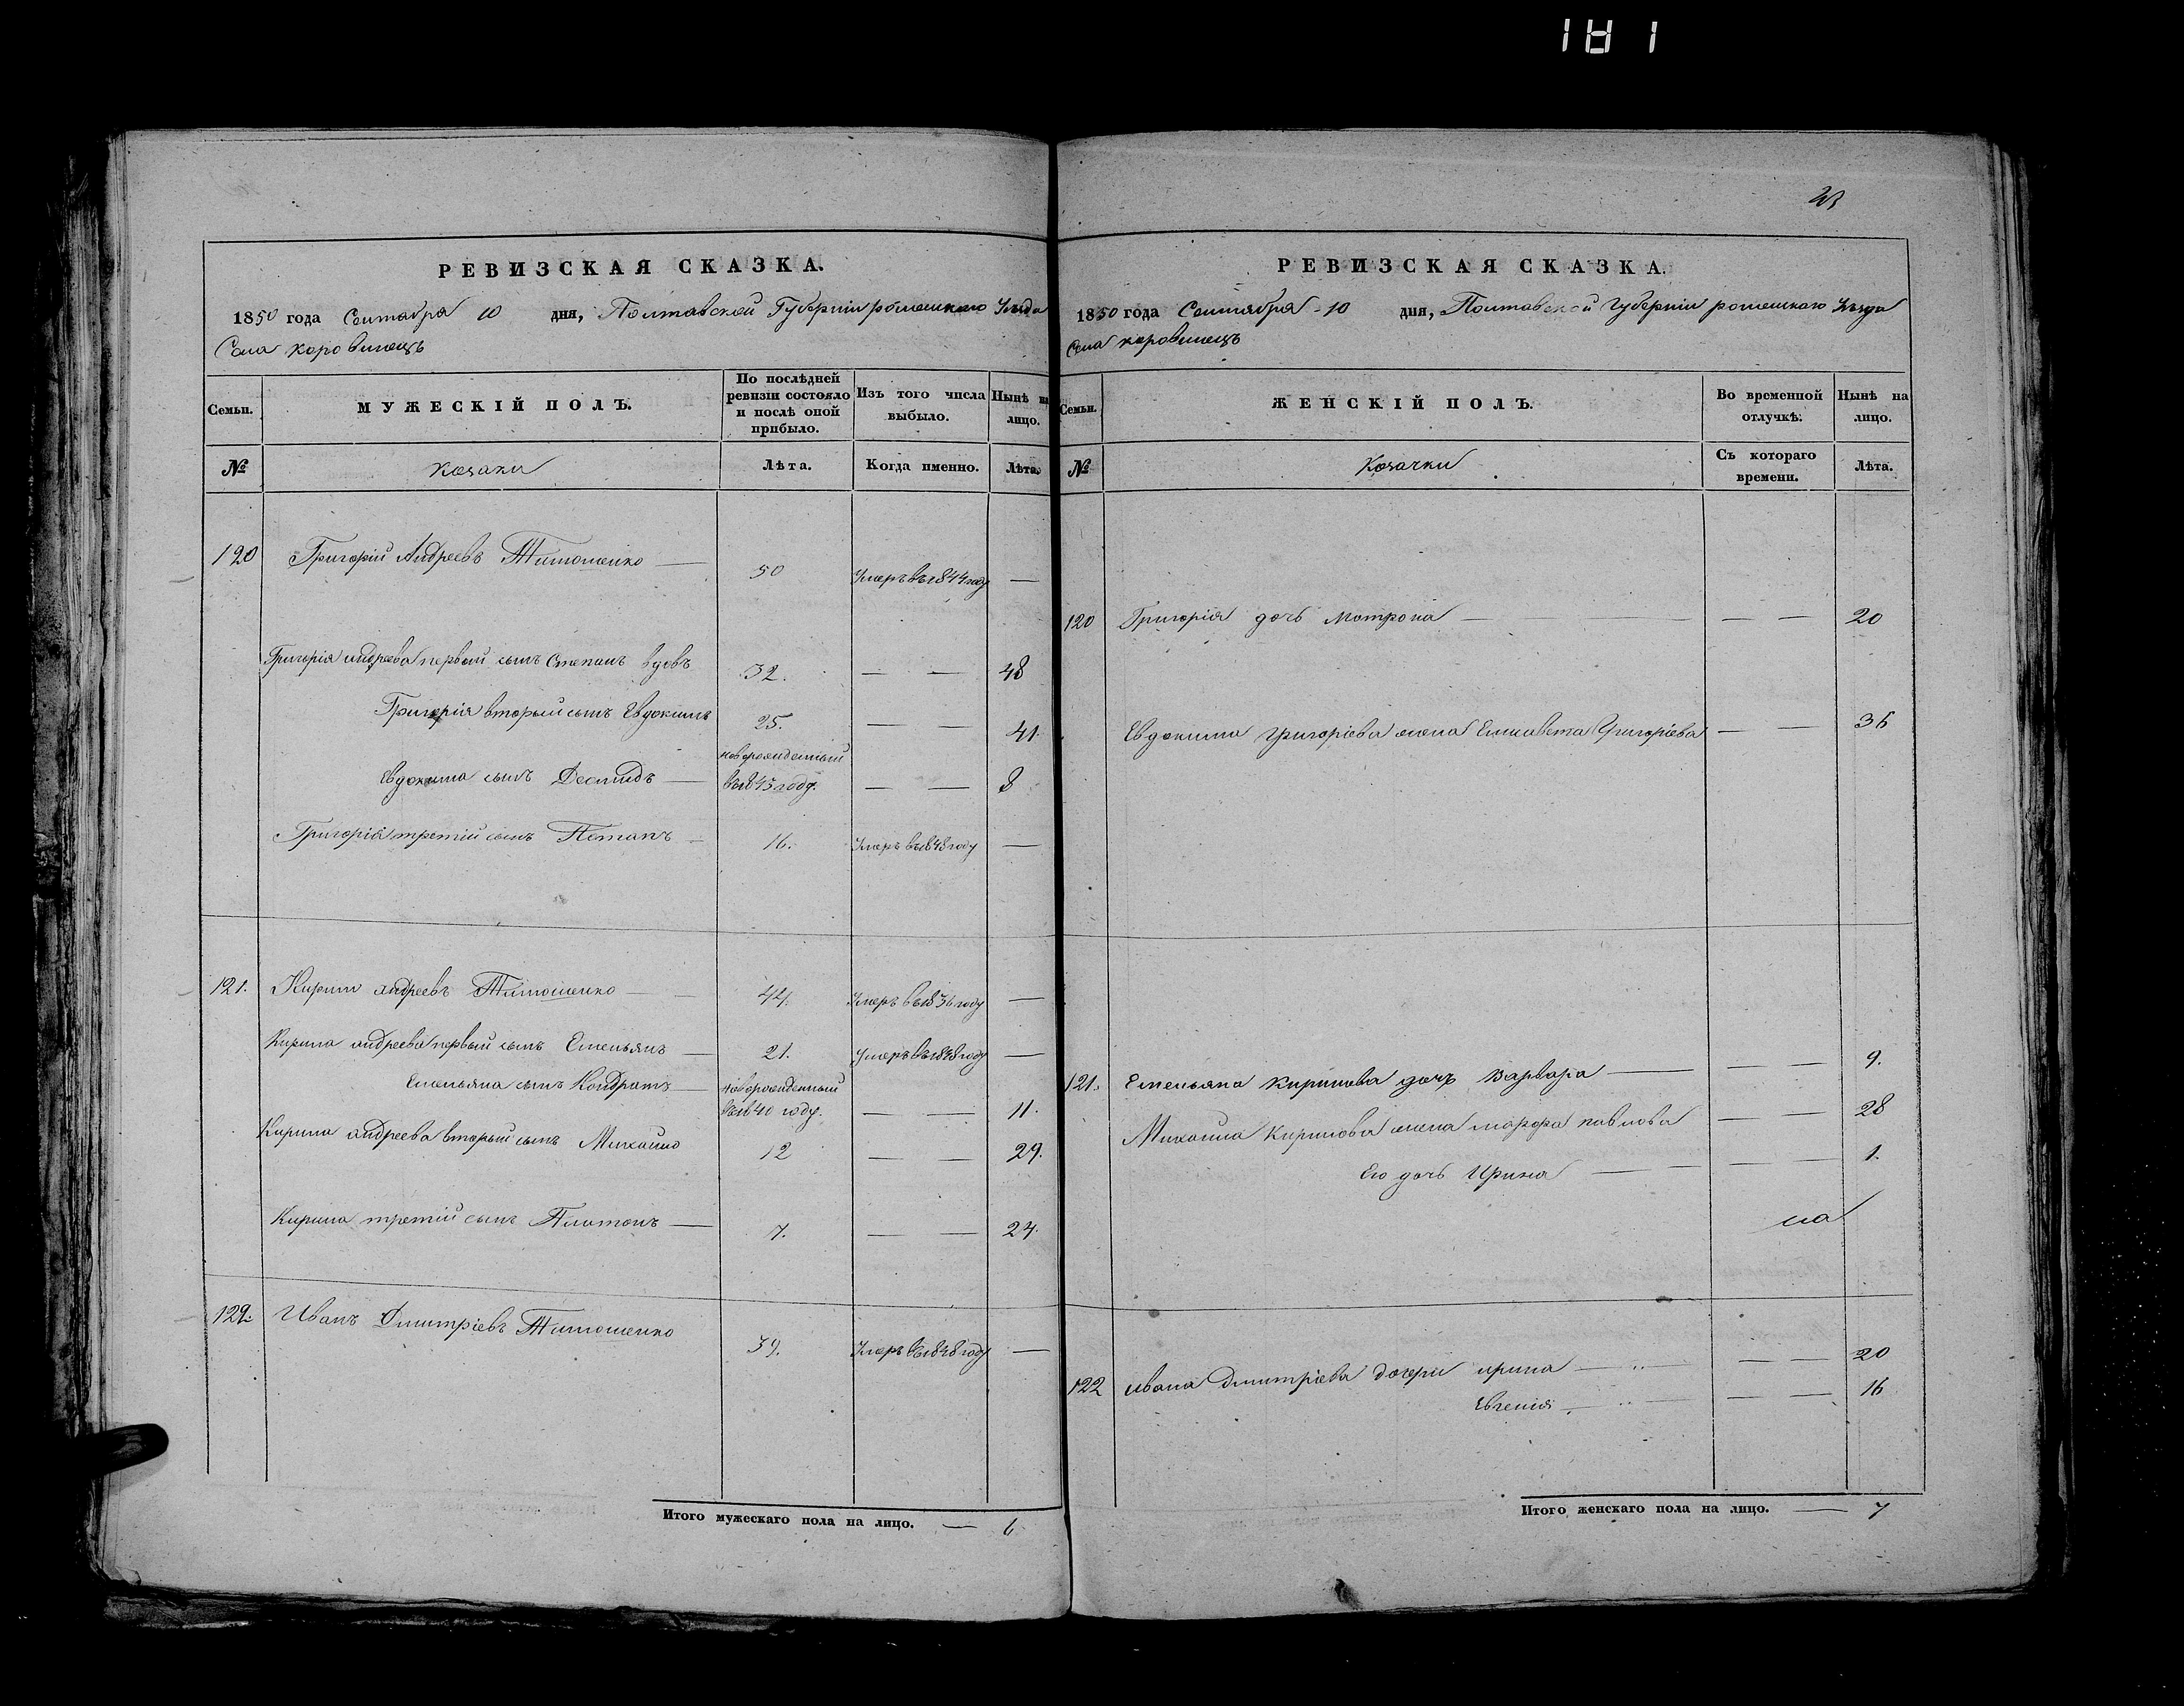 181
РЕВИЗСКАЯ СКАЗКА.
1850 года Сентября 10 дня, Полтавской Губерніи роменского Уезда
Села коровинецъ
Семьи.
МУЖЕСКІЙ ПОЛЪ.
По послѣдней ревизіи состояло и послѣ оной прибыло.
Изъ того числа выбыло.
Нынѣ на лицо.
№
Козаки
Лѣта.
Когда именно.
Лѣта.
120 Григорій Андреевъ Тимошенко — 50 Умеръ въ 1844 году —
Григорія андреева первый сынъ Степанъ вдовъ 32. — — 48
Григорія вторый сынъ Евдокимъ 25. — — 41.
Евдокима сынъ Демидъ — новорожденный въ 1843 году. — — 8
Григорія третій сынъ Потапъ — 16. Умеръ въ 1848 году —
121. Кирило андреевъ Тимошенко — 44. Умеръ въ 1836 году —
Кирила андреева первый сынъ Емельянъ — 21. Умеръ въ 1848 году —
Емельяна сынъ Кондратъ — новорожденный въ 1840 году. — — 11.
Кирила андреева вторый сынъ Михайло 12 — — 29.
Кирила третій сынъ Платонъ — 7. — — 24.
122. Иванъ Дмитріевъ Тимошенко 39. Умеръ въ 1848 году —
Итого мужескаго пола на лицо. — 6
РЕВИЗСКАЯ СКАЗКА.
1850 года Сентября 10 дня, Полтавской Губерніи роменскаго Уезда
Села коровинецъ
Семьи.
ЖЕНСКІЙ ПОЛЪ.
Во временной отлучкѣ.
Нынѣ на лицо.
№
Козачки
Съ котораго времени.
Лѣта.
120 Григорія дочь Мотрона — — — 20
Евдокима григоріева жена Елисавета Григоріева — — 36
121. Емельяна кирилова дочь варвара — — — 9.
Михаила Кирилова жена марфа павлова — — 28
Его дочь Ирина — — — 1.
122 Ивана Дмитріева дочери ирина — — — 20
Евгенія — — — 16
Итого женскаго пола на лицо. — 7